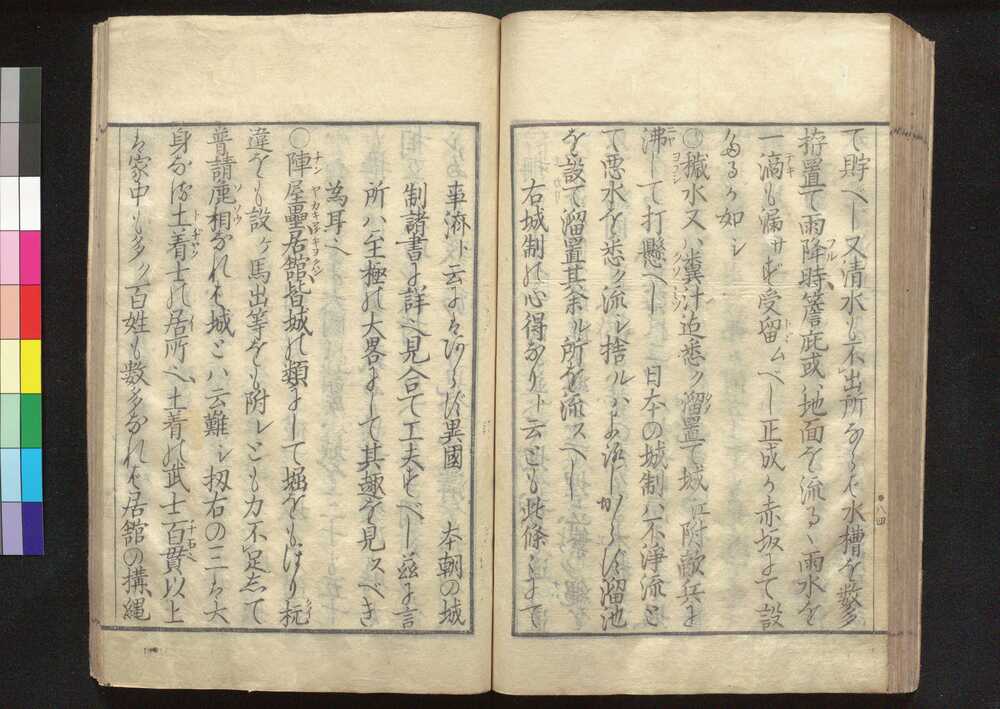 て貯へし又清水も不出所ならは水槽を数多
拵置て雨降時簷庇或ハ地面を流るヽ雨水を
一滴も漏サす受留ムへし正成か赤坂にて設
たるか如シ
水又ハ糞汁迄悉ク溜置て城江附敵兵に
沸して打懸へし日本の城制ハ不浄流と
て悪水を悉ク流シ捨ルハよろしからす溜池
を設て溜置其余ル所を流スへし
右城制の心得なりト云とも此條々にて
八四
事済ト云にはあらす異國　本朝の城
制諸書に詳也見合て工夫すへし茲に言
所ハ至極の大畧にして其趣を見スへき
為耳也
〇陣屋壘居舘皆城の類にして堀をもほり
違をも設ケ馬出等をも附レとも力不足して
普請麁相なれは城とハ云難シ扨右の三ツは大
身なる土着士の居所也土着の武士百貫以上
は家中も多ク百姓も数多なれは居舘の搆縄